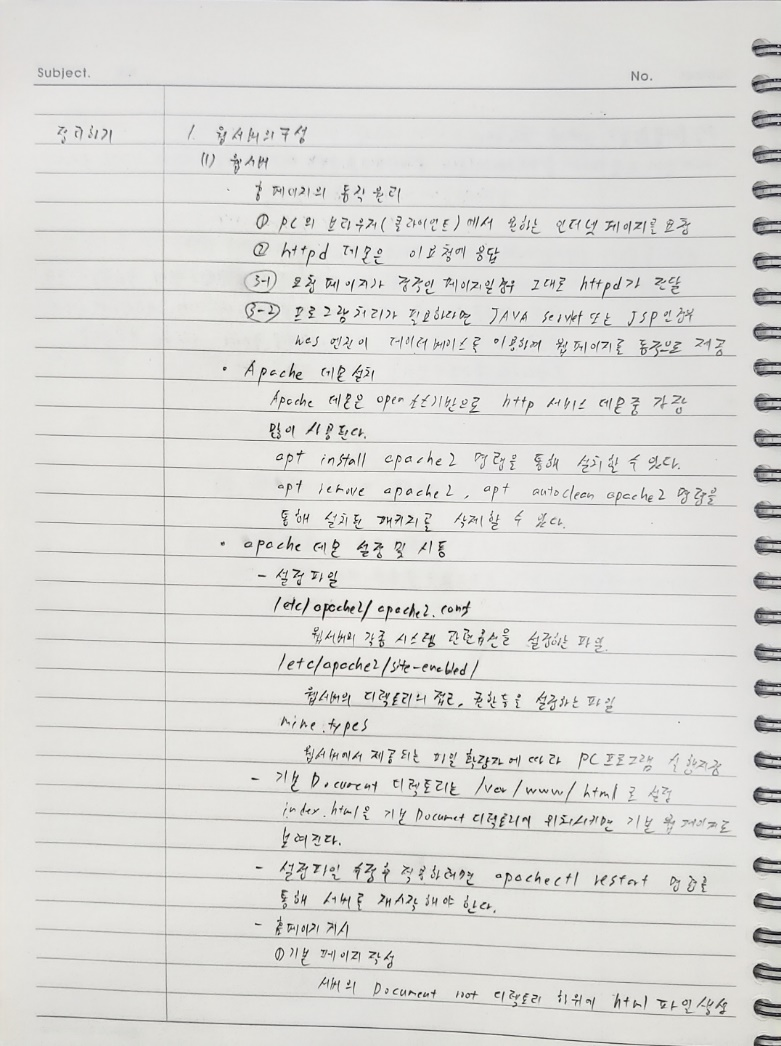 Subject.
No.
정리하기
1. 웹서버의 구성
(1) 웹서버
· 홈페이지의 동작원리
① PC의 브라우저(클라이언트)에서 원하는 인터넷 페이지를 요청
② httpd 데몬은 이 요청에 응답
③-1 요청페이지가 정적인 페이지일경우 그대로 httpd가 전달
③-2 프로그램처리가 필요하다면 JAVA servlet 또는 JSP인경우
was 엔진이 데이터베이스를 이용하여 웹페이지를 동적으로 제공
· Apache 데몬 설치
Apache 데몬은 open 소스기반으로 http 서비스 데몬중 가장
많이 사용된다.
apt install apache2 명령을 통해 설치할 수 있다.
apt remove apache2, apt autoclean apache2 명령을
통해 설치된 패키지를 삭제할 수 있다.
· apache 데몬 설정 및 시동
- 설정파일
/etc/apache2/apache2.conf
웹서버의 각종 시스템 관련옵션을 설정하는 파일
/etc/apache2/site-enabled/
웹서버의 디렉토리의 접근, 권한등을 설정하는 파일
mime.types
웹서버에서 제공되는 파일 확장자에 따라 PC프로그램 실행지정
- 기본 Document 디렉토리는 /var/www/html 로 설정
index.html을 기본 Document 디렉토리에 위치시키면 기본 웹 페이지로
보여진다.
- 설정파일 수정후 적용하려면 apachectl restart 명령을
통해 서버를 재시작해야 한다.
- 홈페이지 게시
① 기본 페이지 작성
서버의 Document root 디렉토리 하위에 html 파일 생성